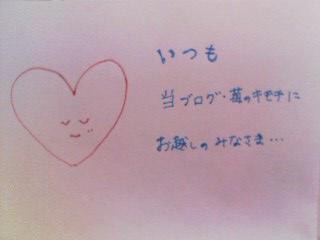 いつも
当ブログ・苺のキモチに
お越しのみなさま…